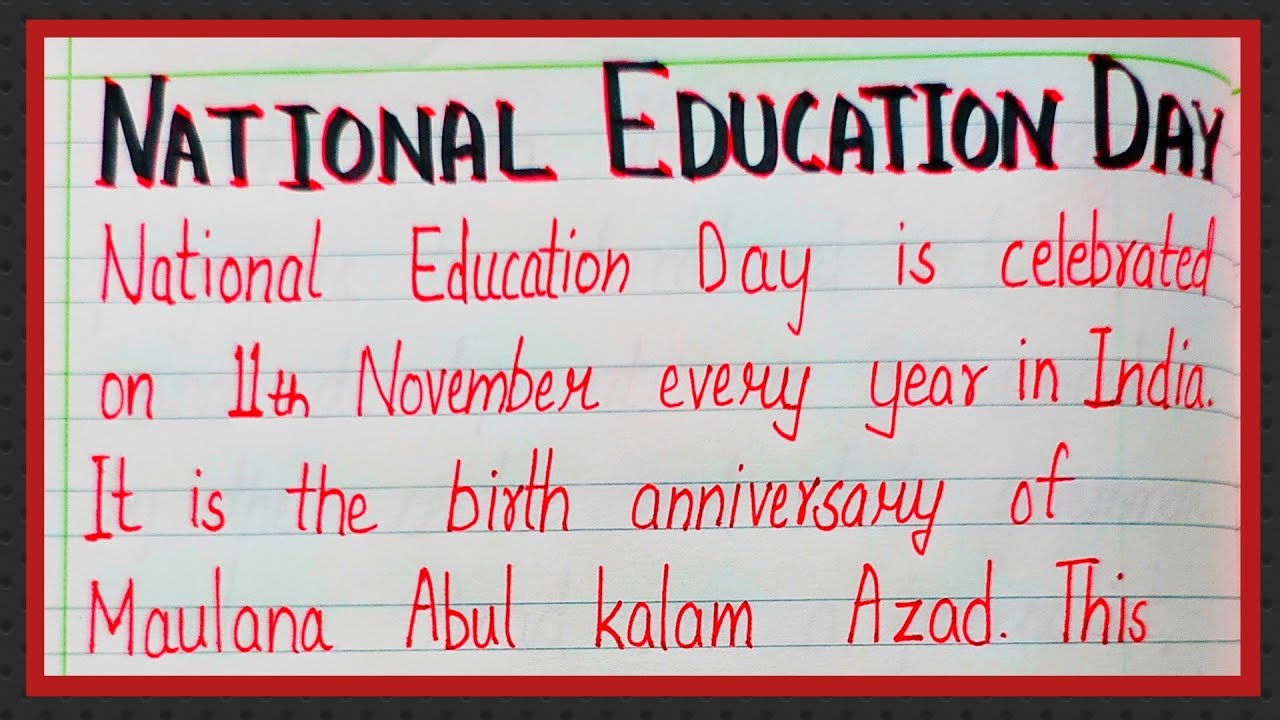 NATIONAL EDUCATION DAY
National Education Day is celebrated
on 11th November every year in India.
It is the birth anniversary of
Maulana Abul kalam Azad. This